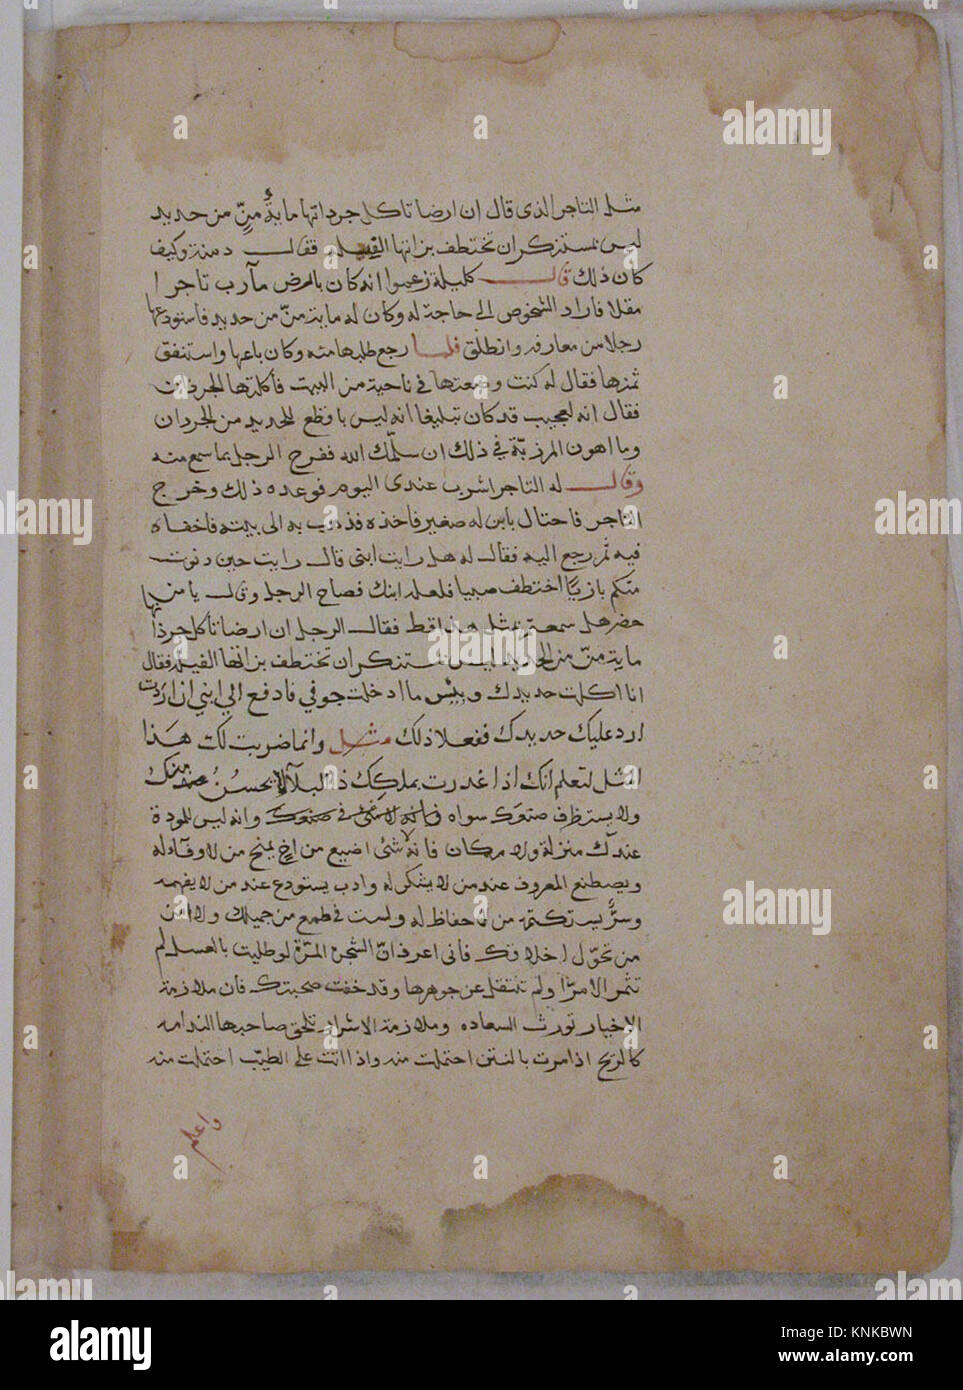 مثل التاجر الذى قال ان ارضا تاكل جرذانها ماية منّ من حديد
ليس تستنكر ان تختطف بزاتها الفيله فقال دمنة وكيف
كان ذلك قال كليلة زعموا انه كان بارض مآرب تاجرا
مقلا فاراد الشخوص الى حاجة له وكان له ماية منّ من حديد فاستودعها
رجلا من معارفه وانطلق فلما رجع طلبها منه وكان باعها واستنفق
ثمنها فقال له كنت وضعتها فى ناحية من البيت فأكلتها الجرذان
فقال انه لعجيب قد كان تبليغا انه ليس باقطع للحديد من الجرذان
وما اهون المرزيّة فى ذلك ان سلّمك الله ففرح الرجل بما سمع منه
وقال له التاجر اشرب عندى اليوم فوعده ذلك وخرج
التاجر فاحتال بابن له صغير فاخذه فذهب به الى بيته فاخفاه
فيه ثم رجع اليه فقال له هل رايت ابنى قال رايت حين دنوت
منكم بازيًا اختطف صبيا فلعله ابنك فصاح الرجل وقال يا من
حضر هل سمعتم بمثل هذا قط فقال الرجل ان ارضا تأكل جرذانها
ماية منّ من الحديد ليس تستنكر ان تختطف بزاتها الفيله فقال
انا اكلت حديدك وبئس ما ادخلت جوفي فادفع الي ابني ان اردت
ارد عليك حديدك ففعلا ذلك مثل وانما ضربت لك هذا
المثل لتعلم انك اذا غدرت بملكك ذا البلآء الحسن
ولا يستظرف صنعك سواه وانه ليس للمودة
عندك منزلة ولا مكان فانه لا شئ اضيع من اخٍ يمنح من لا وفآء له
ويصطنع المعروف عند من لا يشكر له وادب يستودع عند من لا يفهمه
وسرٌّ يستكتمه من لا حفاظ له ولست في طمع من جميلك ولا امن
من تحوّل اخلاقك فأنى اعرف انّ الشجرة المرّة لو طليت بالعسل لم
تثمر الا مرّا ولم تنتقل عن جوهرها وقد خفت صحبتك فان ملازمة
الاخيار تورث السعاده وملازمة الاشرار تلحق صاحبها الندامه
كالريح اذا مرت بالنتن احتملت منه واذا اتت على الطيّب احتملت منه
واعلم
alamy
a
KNKBWN
www.alamy.com
Image ID: KNKBWN